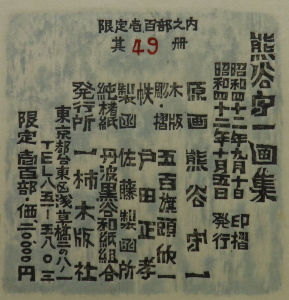 限定壱百部之内
其 49 册
熊谷守一画集
昭和四十二年九月十日 印摺
昭和四十二年十月五日 発行
原画 熊谷守一
木版 彫・摺 五百旗頭欣一
帙 戸田正孝
製函 佐藤製函所
純楮紙 丹波黒谷和紙組合
発行所 一柿木版社
東京都台東区浅草橋二の八ノ一
TEL 八五一-五七八〇三
限定壱百部・価二〇〇〇〇円